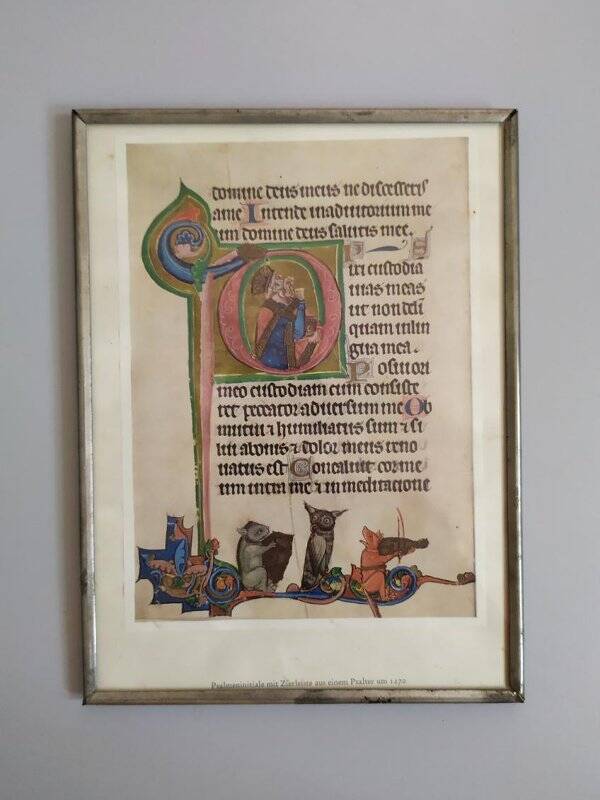 domine deus meus ne discesseris
a me Intende in adiutorium me
um domine deus salutis mee.
D
ixi custodia
uias meas
ut non deli
quam in lin
gua mea.
Posui ori
meo custodiam cum consiste
ret peccator aduersum me Ob
mutui ⁊ humiliatus sum ⁊ si
lui a bonis ⁊ dolor meus reno
uatus est Concaluit cor me
um intra me ⁊ in meditatione
Psalmeninitiale mit Zierleiste aus einem Psalter um 1270